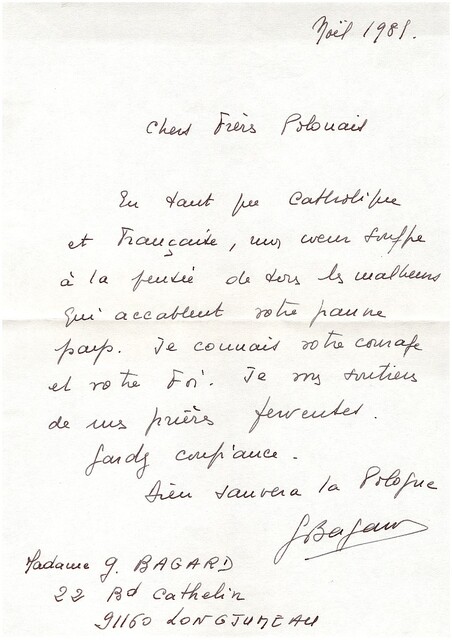 Noël 1981.
Chers Frères Polonais
En tant que Catholique
et Française, mon coeur souffre
à la pensée de tous les malheurs
qui accablent votre pauvre
pays. Je connais votre courage
et votre Foi. Je vous soutiens
de mes prières ferventes.
Gardez confiance.
Dieu sauvera la Pologne
GBagard
Madame G. BAGARD
22 Bd Cathelin
91160 LONGJUMEAU